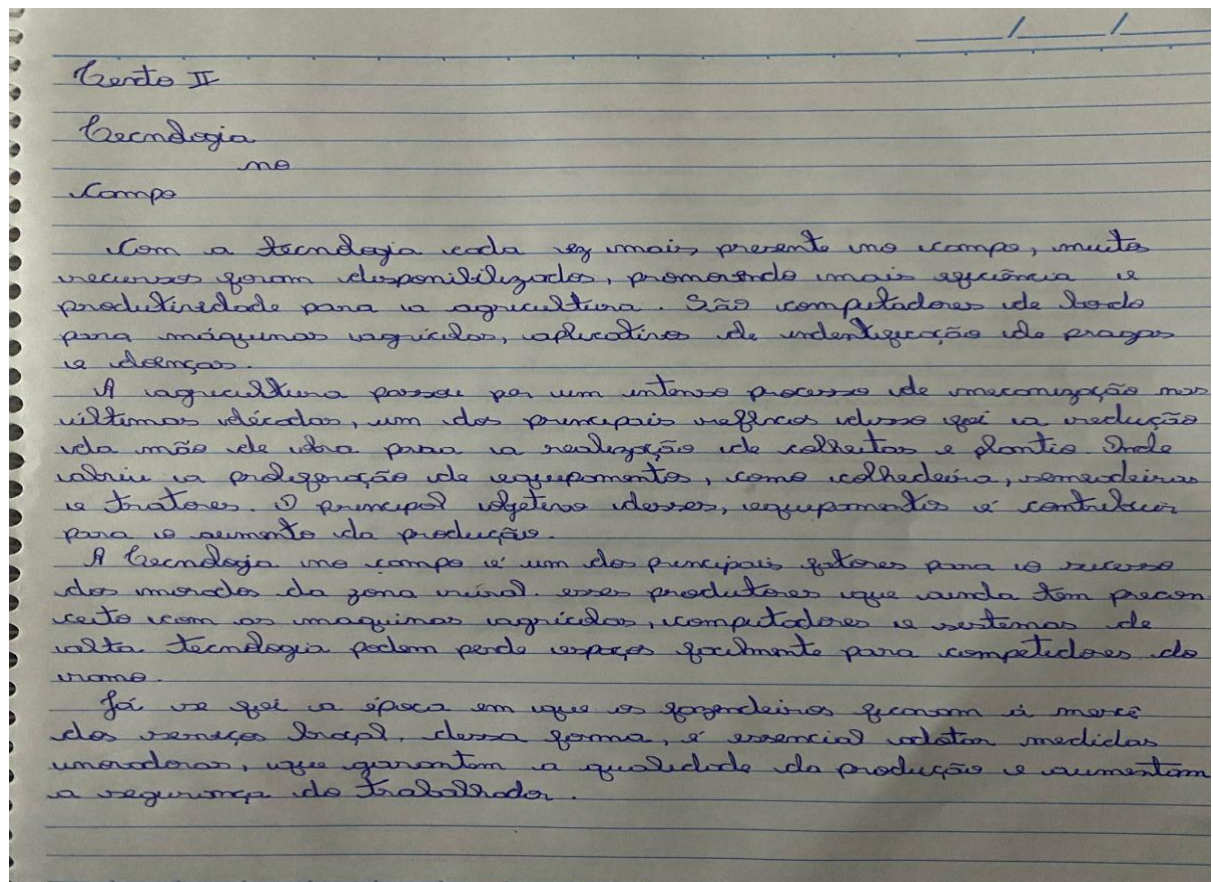 Texto II
Tecnologia
no
Campo
Com a tecnologia cada vez mais presente no campo, muitos
recursos foram disponibilizados, promovendo mais eficiência e
produtividade para a agricultura. São computadores de bordo
para máquinas agrícolas, aplicativos de indentificação de pragas
e doenças.
A agricultura passou por um intenso processo de mecanização nas
últimas décadas, um dos principais reflexos disso foi a redução
da mão de obra para a realização de colheitas e plantio. Onde
abriu a proliferação de equipamentos, como colhedeira, semeadeiras
e tratores. O principal objetivo desses, equipamentos é contribuir
para o aumento da produção.
A Tecnologia no campo é um dos principais fatores para o sucesso
dos morados da zona rural. esses produtores que ainda tem precon
ceito com as maquinas agrícolas, computadores e sistemas de
alta tecnologia podem perde espaços facilmente para competidores do
ramo.
Já se foi a época em que os fazendeiros ficavam à mercê
dos serviços braçal, dessa forma, é essencial adotar medidas
inovadoras, que garantam a qualidade da produção e aumentam
a segurança do trabalhador.